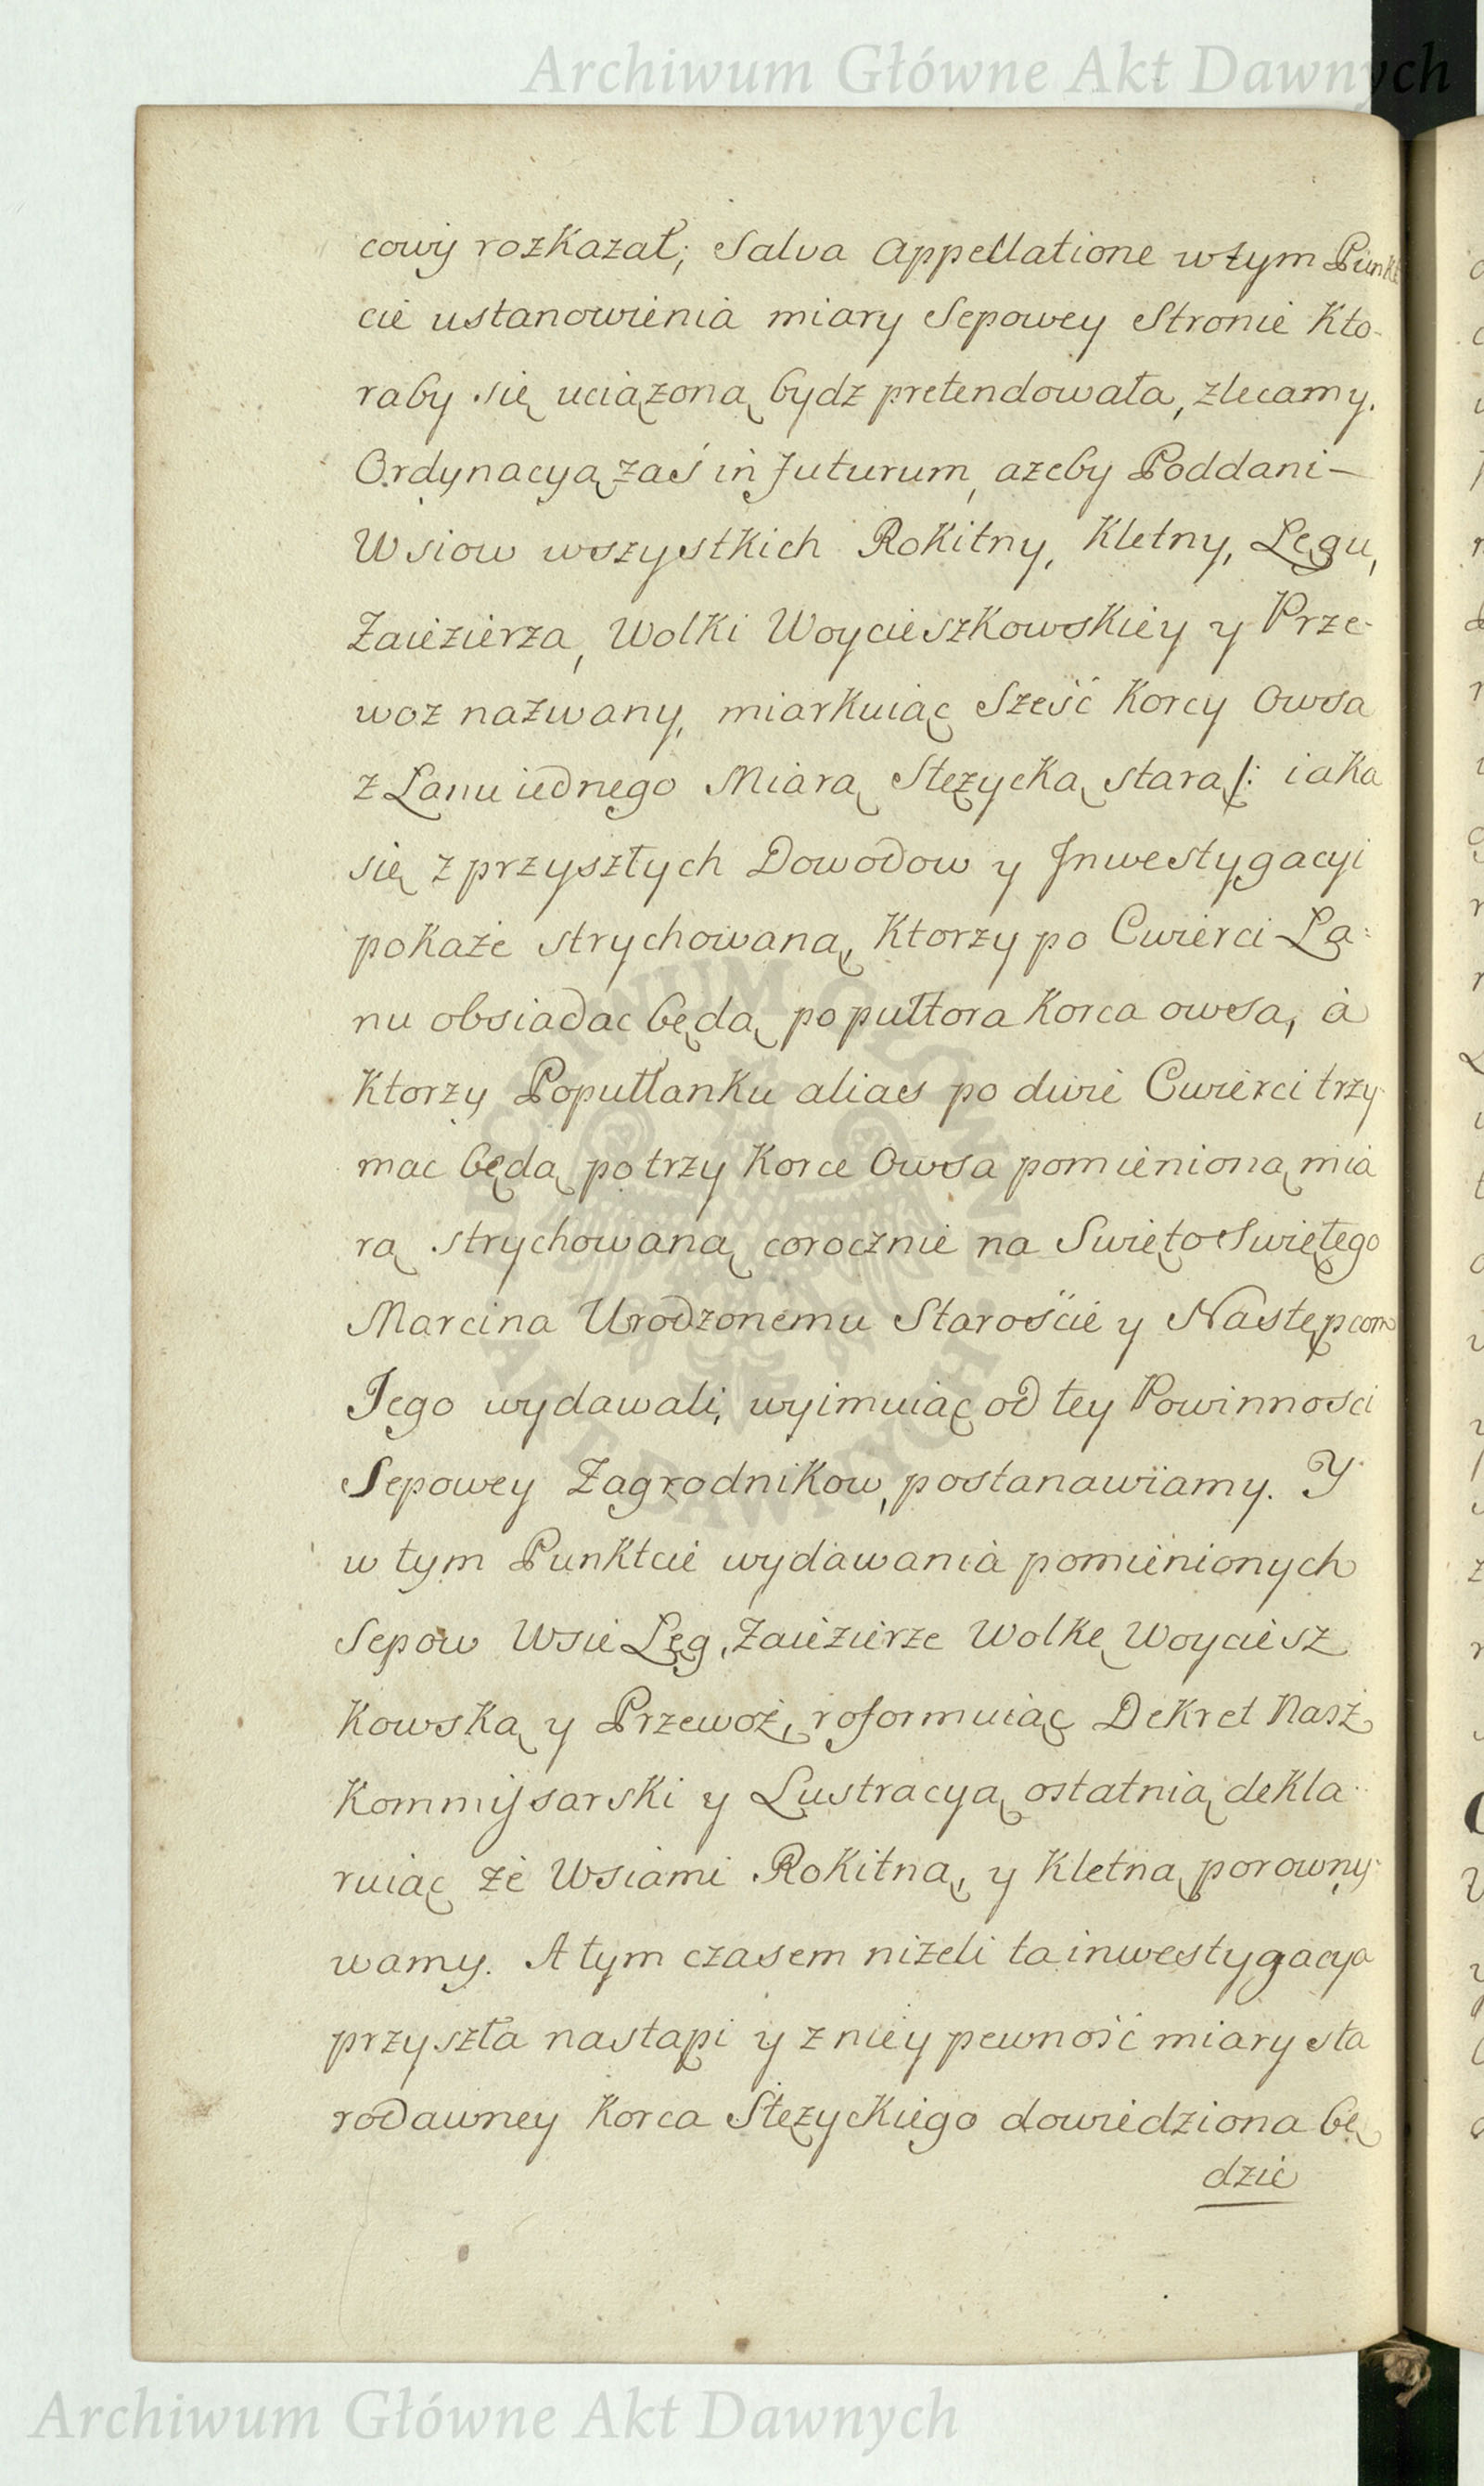 Archiwum Główne Akt Dawnych
cowy rozkazał; Salva Appellatione w tym Punkt
cie ustanowienia miary Sepowey Stronie Kto-
raby się uciązoną bydz pretendowała, zlecamy.
Ordynacyą zaś in futurum, azeby Poddani —
Wsiow wszystkich Rokitny, Kletny, Lęgu,
Zaiezierza, Wolki Woycieszkowskiey y Prze-
woz nazwany, miarkuiąc Sześć Korcy Owsa
z Lanu iednego Miarą Stęzycką starą /: iaka
się z przyszłych Dowodow y Inwestygacyi
pokaże strychowaną, Ktorzy po Cwierci La-
nu obsiadac będą po pułtora Korca owsa, à
Ktorzy Po pułłanku alias po dwie Cwierci trzy-
mac będą po trzy Korce Owsa pomienioną mia
rą strychowaną corocznie na Swięto Swiętego
Marcina Urodzonemu Starościе y Następcom
Jego wydawali, wyimuiąc od tey Powinnosci
Sepowey Zagrodnikow, postanawiamy. Y
w tym Punktcie wydawania pomienionych
Sepow Wsie Lęg, Zaiezierze Wolkę Woyciesz
Kowską y Przewoż, roformuiąc Dekret Nasz
Kommisarski y Lustracyą ostatnią dekla-
ruiąc że Wsiami Rokitną, y Kletną porowny-
wamy. A tym czasem nizeli ta inwestygacya
przyszła nastąpi y z niey pewność miary sta
rodawney Korca Stęzyckiego dowiedziona bę
dzie
ARCHIWUM GŁÓWNE AKT DAWNYCH
Archiwum Główne Akt Dawnych